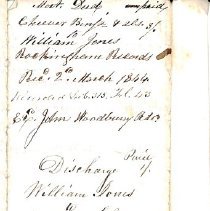 Mort. Deed,
unpaid
Cheever Benj. & als. 2/.
to
William Jones
Rockingham Records
Rec'd 2d March 1844
recorded Lib. 313. Fol. 43
Ex. John Woodbury Rdr.
Paid
1/.
Discharge
William Jones